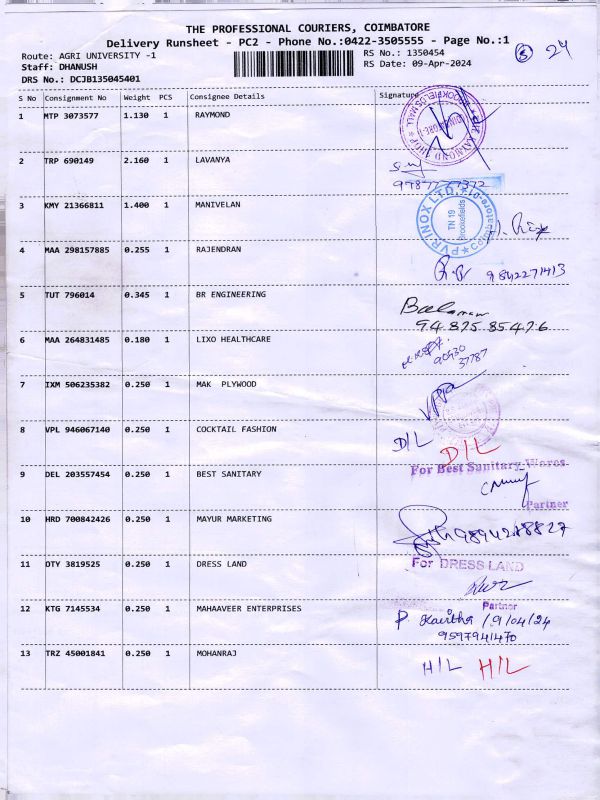 THE PROFESSIONAL COURIERS, COIMBATORE
Delivery Runsheet - PC2 - Phone No.:0422-3505555 - Page No.:1
Route: AGRI UNIVERSITY -1
RS No.: 1350454
24
Staff: DHANUSH
RS Date: 09-Apr-2024
DRS No.: DCJB135045401
S No Consignment No Weight PCS Consignee Details Signature
1 MTP 3073577 1.130 1 RAYMOND
2 TRP 690149 2.160 1 LAVANYA
3 KMY 21366811 1.400 1 MANIVELAN
PVR INOX LTD
TN 19
Brookefields
Coimbatore
4 MAA 298157885 0.255 1 RAJENDRAN
9842271413
5 TUT 796014 0.345 1 BR ENGINEERING
94875 85476
6 MAA 264831485 0.180 1 LIXO HEALTHCARE
37787
7 IXM 506235382 0.250 1 MAK PLYWOOD
8 VPL 946067140 0.250 1 COCKTAIL FASHION D/L D/L
For Best Sanitary Wares
9 DEL 203557454 0.250 1 BEST SANITARY
Partner
10 HRD 700842426 0.250 1 MAYUR MARKETING
11 OTY 3819525 0.250 1 DRESS LAND
For DRESS LAND
Partner
12 KTG 7145534 0.250 1 MAHAAVEER ENTERPRISES
P. Kavitha /9/04/24
9597941470
13 TRZ 45001841 0.250 1 MOHANRAJ H/L H/L